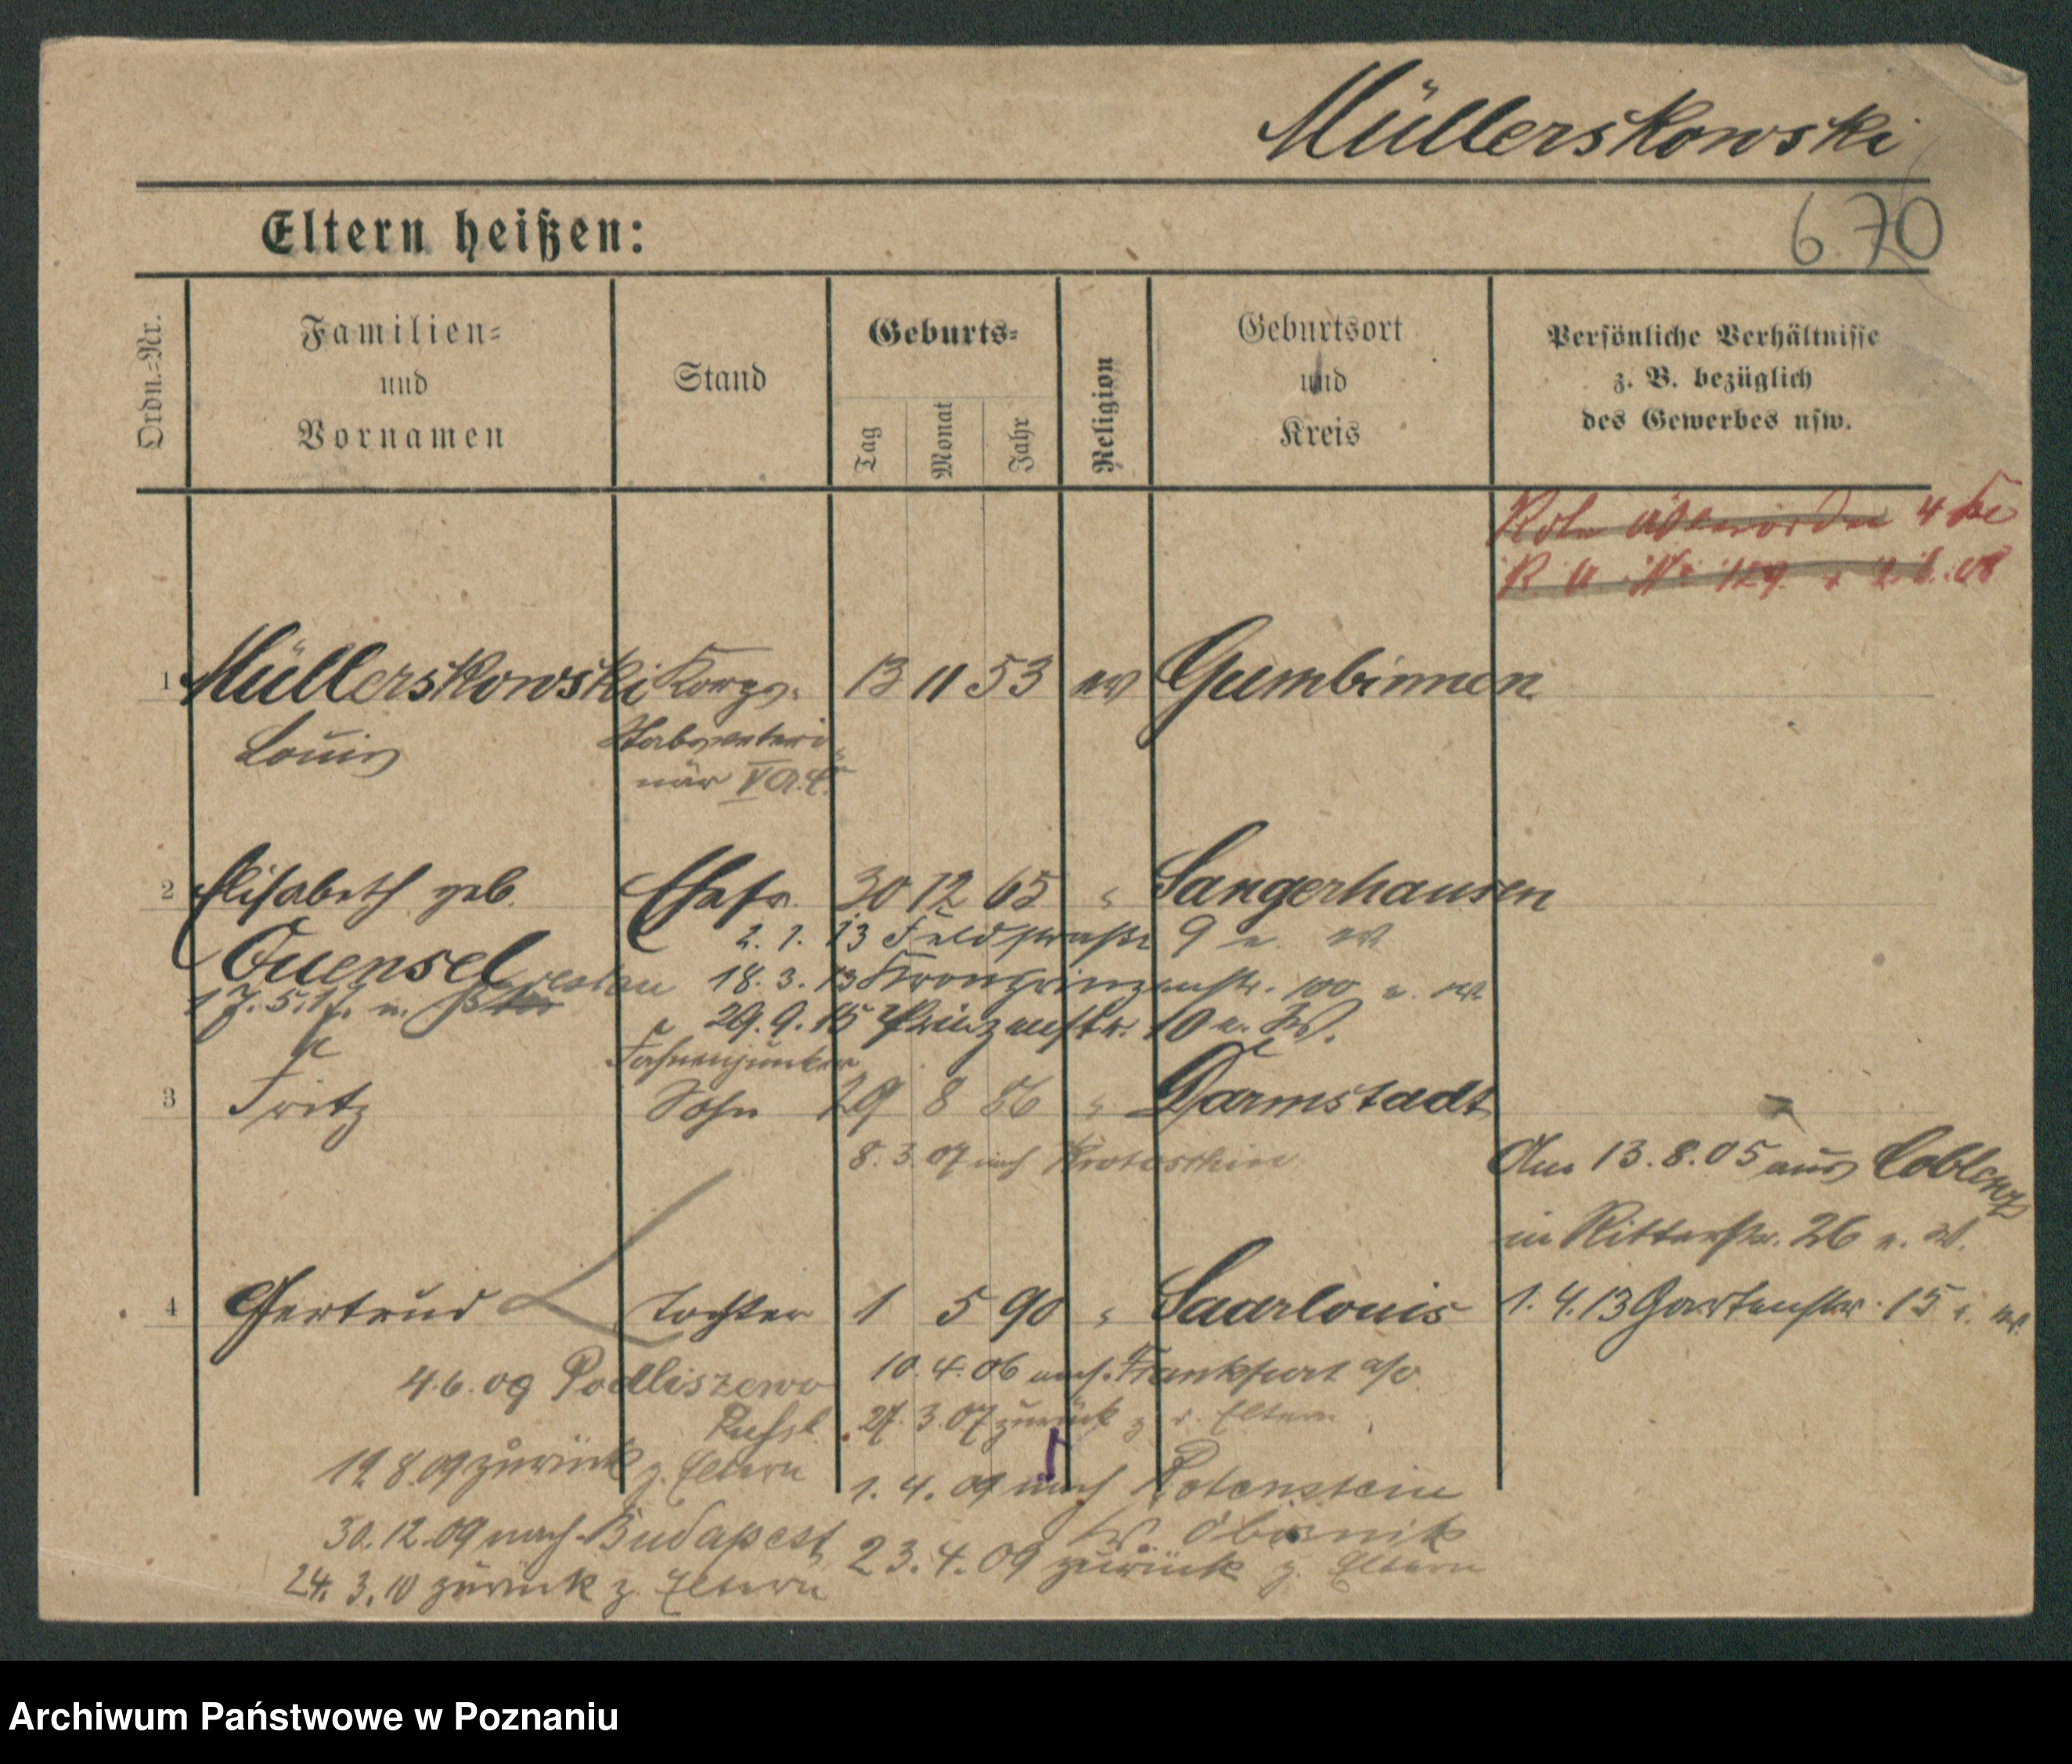 Müllerskowski
670
Eltern heißen:
Ordn.=Nr.
Familien=
und
Vornamen
Stand
Geburts=
Tag
Monat
Jahr
Religion
Geburtsort
und
Kreis
Persönliche Verhältnisse
z. B. bezüglich
des Gewerbes usw.
Rote Adlerorden 4 Kl
R. A. Nr 129 v 2.1.08
1 Müllerskowski Korps- 13 11 53 ev Gumbinnen
Louis Stabsveteri-
när V A.C.
2 Elisabeth geb. Ehefr. 30 12 65 " Sangerhausen
2. 1. 13 Feldstraße 9 e. W
Quensel
18. 3. 13 Kronprinzenstr. 100 e. W
17. 5. 17. n. Breslau
29. 9. 15 Prinzenstr. 10 e. W.
Fahnenjunker
3 Fritz Sohn 29 8 86 " Darmstadt
8. 3. 07 nach Krotoschin
Am 13. 8. 05 aus Coblenz
in Ritterstr. 26 e. W.
4 Gertrud Tochter 1 5 90 " Saarlouis 1. 4. 13 Gartenstr. 15 e. W.
4. 6. 09 Podliszewo
Russl.
10. 4. 06 nach Frankfurt a/O
27. 3. 07 zurück z. d. Eltern
19. 8. 09 zurück z. Eltern
1. 4. 09 nach Rotenstein
Kr. Obornik
30. 12. 09 nach Budapest
23. 4. 09 zurück z. Eltern
24. 3. 10 zurück z. Eltern
Archiwum Państwowe w Poznaniu